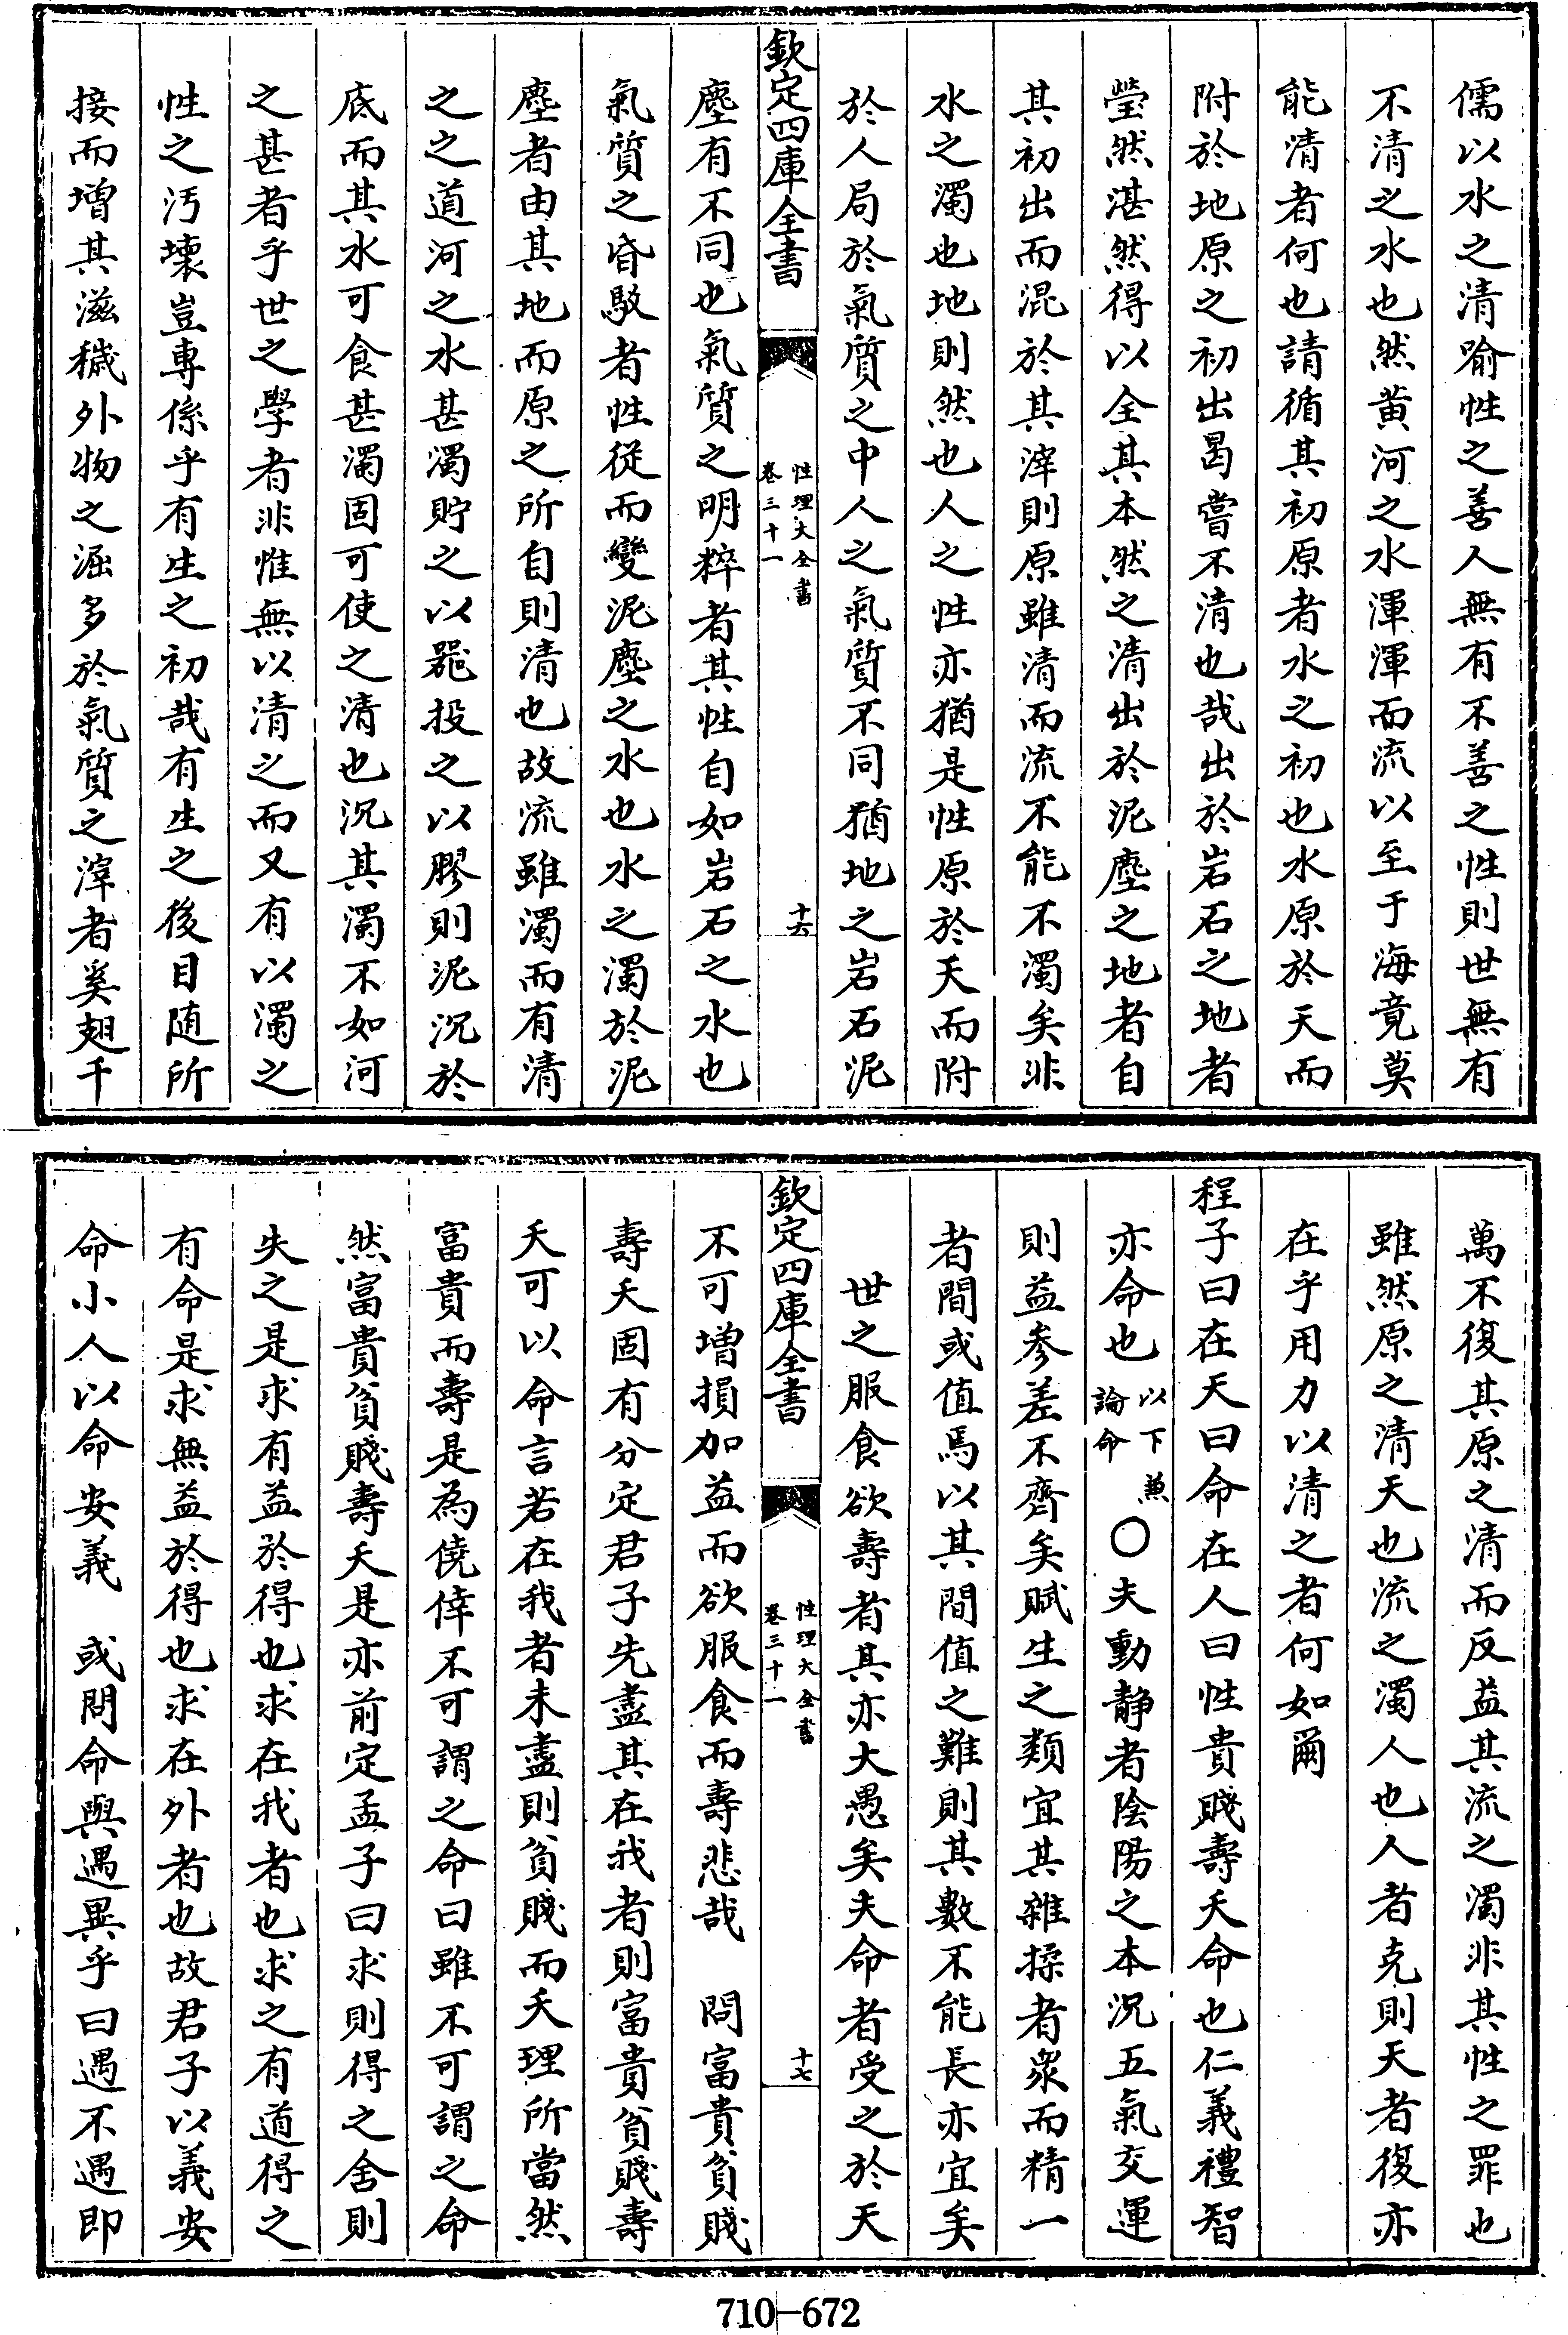 儒以水之清喻性之善人無有不善之性則世無有
不清之水也然黄河之水渾渾而流以至于海竟莫
能清者何也請循其初原者水之初也水原於天而
附於地原之初出曷嘗不清也哉出於岩石之地者
瑩然湛然得以全其本然之清出於泥塵之地者自
其初出而混於其滓則原雖清而流不能不濁矣非
水之濁也地則然也人之性亦猶是性原於天而附
於人局於氣質之中人之氣質不同猶地之岩石泥
欽定四庫全書
性理大全書
卷三十一
十六
塵有不同也氣質之明粹者其性自如岩石之水也
氣質之昏駁者性從而變泥塵之水也水之濁於泥
塵者由其地而原之所自則清也故流雖濁而有清
之之道河之水甚濁貯之以器投之以膠則泥沉於
底而其水可食甚濁固可使之清也沉其濁不如河
之甚者乎世之學者非惟無以清之而又有以濁之
性之汚壞豈專係乎有生之初哉有生之後日随所
接而增其滋穢外物之溷多於氣質之滓者奚翅千
萬不復其原之清而反益其流之濁非其性之罪也
雖然原之清天也流之濁人也人者克則天者復亦
在乎用力以清之者何如爾
程子曰在天曰命在人曰性貴賤壽夭命也仁義禮智
亦命也以下兼論命○夫動静者陰陽之本況五氣交運
則益參差不齊矣賦生之類宜其雜揉者衆而精一
者間或值焉以其間值之難則其數不能長亦宜矣
世之服食欲壽者其亦大愚矣夫命者受之於天
欽定四庫全書
性理大全書
卷三十一
十七
不可增損加益而欲服食而壽悲哉　問富貴貧賤
壽夭固有分定君子先盡其在我者則富貴貧賤壽
夭可以命言若在我者未盡則貧賤而夭理所當然
富貴而壽是為僥倖不可謂之命曰雖不可謂之命
然富貴貧賤壽夭是亦前定孟子曰求則得之舍則
失之是求有益於得也求在我者也求之有道得之
有命是求無益於得也求在外者也故君子以義安
命小人以命安義　或問命與遇異乎曰遇不遇即
710-672